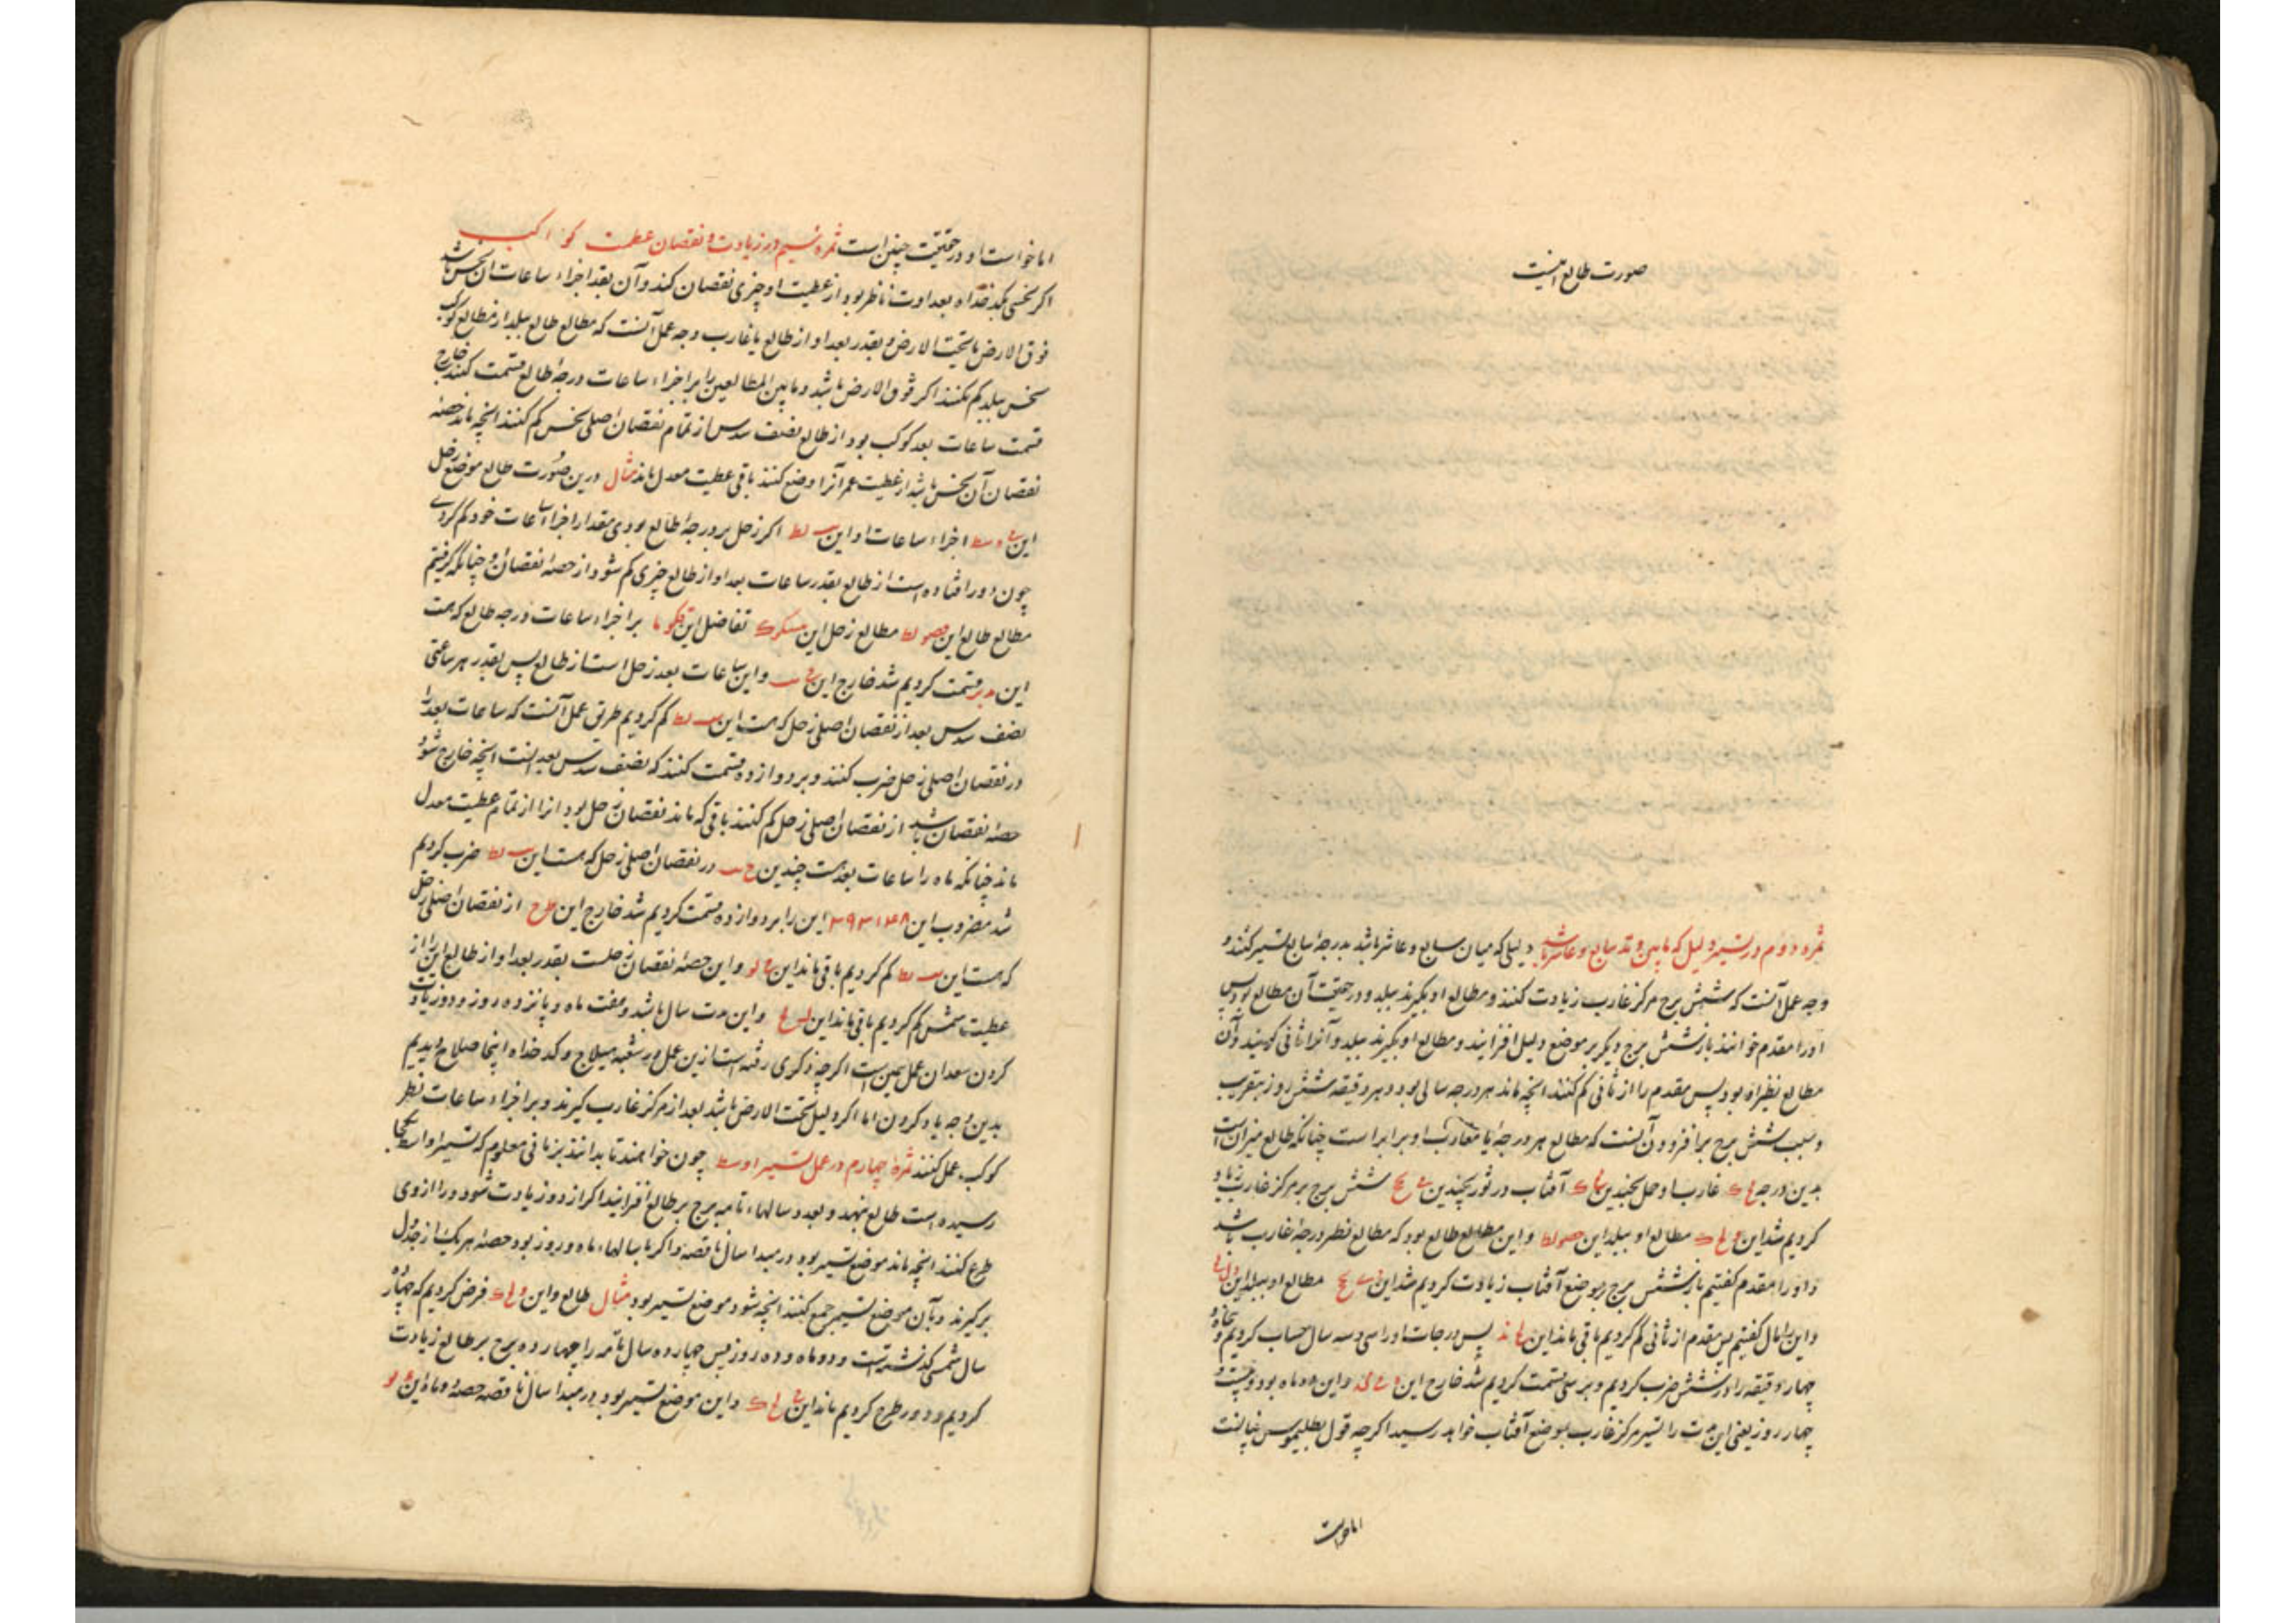 صورت طالع اینست
ثمره دوم در تسییر دلیل که مابین وتد سابع و عاشر باشد دلیلی که میان سابع و عاشر باشد بدرجهٔ سابع تسییر کنند و
وجه عمل آنست که شش برج مرکز غارب زیادت کنند و مطالع او بگیرند ببلد و در حقیقت آن مطالع بود پس
اورا مقدم خوانند باز شش برج دیگر بر موضع دلیل افزایند و مطالع او بگیرند ببلد و آنرا ثانی گویند و آن
مطالع نظیر او بود پس مقدم را از ثانی کم کنند انچه ماند هر درجه سالی بود و هر دقیقه شش روز بتقریب
و سبب شش برج بر افزودن آنست که مطالع هر درجه با مغارب او برابر است چنانکه طالع میزان است
بدین درجه غارب او حمل بچندین آفتاب در ثور بچندین شش برج بر مرکز غارب زیاد
کردیم شد این مطالع او ببلد این و این مطالع طالع بود که مطالع نظیر درجهٔ غارب باشد
و اورا مقدم گفتیم باز شش برج بر موضع آفتاب زیادت کردیم شد این مطالع او ببلد این
و این را گفتیم پس مقدم از ثانی کم کردیم باقی ماند این پس درجات اورا سی و سه سال حساب کردیم و پنجاه و
چهار دقیقه را در شش ضرب کردیم و بر سی قسمت کردیم شد خارج این و این ده ماه بود و بیست و
چهار روز یعنی این مدت را تسییر مرکز غارب بموضع آفتاب خواهد رسید اگرچه قول بطلیموس نه اینست
اما خواست
اما خواست او در حقیقت چنین است ثمره سیم در زیادت و نقصان عطیت کواکب
اگر نحسی بکدخداه بعداوت ناظر بود از عطیت او چیزی نقصان کند و آن بقدر اجزاء ساعات آن نحس باشد
فوق الارض یا تحت الارض و بقدر بعد او از طالع یا غارب وجه عمل آنست که مطالع طالع ببلد از مطالع کوکب
نحس ببلد کم کنند اگر فوق الارض باشد و مابین المطالعین را بر اجزاء ساعات درجهٔ طالع قسمت کنند خارج
قسمت ساعات بعد کوکب بود از طالع نصف سدس از تمام نقصان اصلی نحس کم کنند انچه ماند حصهٔ
نقصان آن نحس باشد از عطیت عمر آنرا وضع کنند باقی عطیت معدل ماند مثال درین صورت طالع موضع زحل
این اجزاء ساعات او این اگر زحل بر درجهٔ طالع بودی مقدار اجزاء ساعات خود کم کردی
چون دور افتاده است از طالع بقدر ساعات بعد او از طالع چیزی کم شود از حصهٔ نقصان او چنانکه گرفتیم
مطالع طالع این مطالع زحل این تفاضل این بر اجزاء ساعات درجه طالع که هست
این قسمت کردیم شد خارج این و این ساعات بعد زحل است از طالع پس بقدر هر ساعتی
نصف سدس بعد از نقصان اصلی زحل که هست این کم کردیم طریق عمل آنست که ساعات بعد را
در نقصان اصلی زحل ضرب کنند و بر دوازده قسمت کنند که نصف سدس بعد است انچه خارج شود
حصهٔ نقصان باشد از نقصان اصلی زحل کم کنند باقی که ماند نقصان زحل بود انرا از تمام عطیت معدل
ماند چنانکه ماه را ساعات بعد هست چندین در نقصان اصلی زحل که هست این ضرب کردیم
شد مضروب این این را بر دوازده قسمت کردیم شد خارج این از نقصان اصلی زحل
که هست این کم کردیم باقی ماند این و این حصهٔ نقصان زحلست بقدر بعد او از طالع این را از
عطیت شمس کم کردیم باقی ماند این و این مدت سال باشد و هفت ماه و پانزده روز و در زیادت
کردن سعدان عمل همین است اگرچه ذکری رفته است ازین عمل در شعبه هیلاج و کدخداه اینجا صلاح دیدیم
بدین وجه یاد کردن اما اگر دلیل تحت الارض باشد بعد از مرکز غارب گیرند و بر اجزاء ساعات نظیر
کوکب عمل کنند ثمرهٔ چهارم در عمل تسییر اوسط چون خواهند تا بدانند بزمانی معلوم که تسییر اوسط کجا
رسیده است طالع بنهند و بعدد سالها تامه برج بر طالع افزایند اگر از دور زیادت شود دور از وی
طرح کنند انچه ماند موضع تسییر بود در مبدا سال ناقصه و اگر با سالها ماه و روز بود حصهٔ هر یک از جدول
برگیرند و بآن موضع تسییر جمع کنند انچه شود موضع تسییر بود مثال طالع و این فرض کردیم که چهارده
سال شمسی گذشته است و دو ماه و ده روز پس چهارده سال تامه را چهارده برج بر طالع زیادت
کردیم و دور طرح کردیم ماند این و این موضع تسییر بود در مبدا سال ناقصه حصهٔ دو ماه این